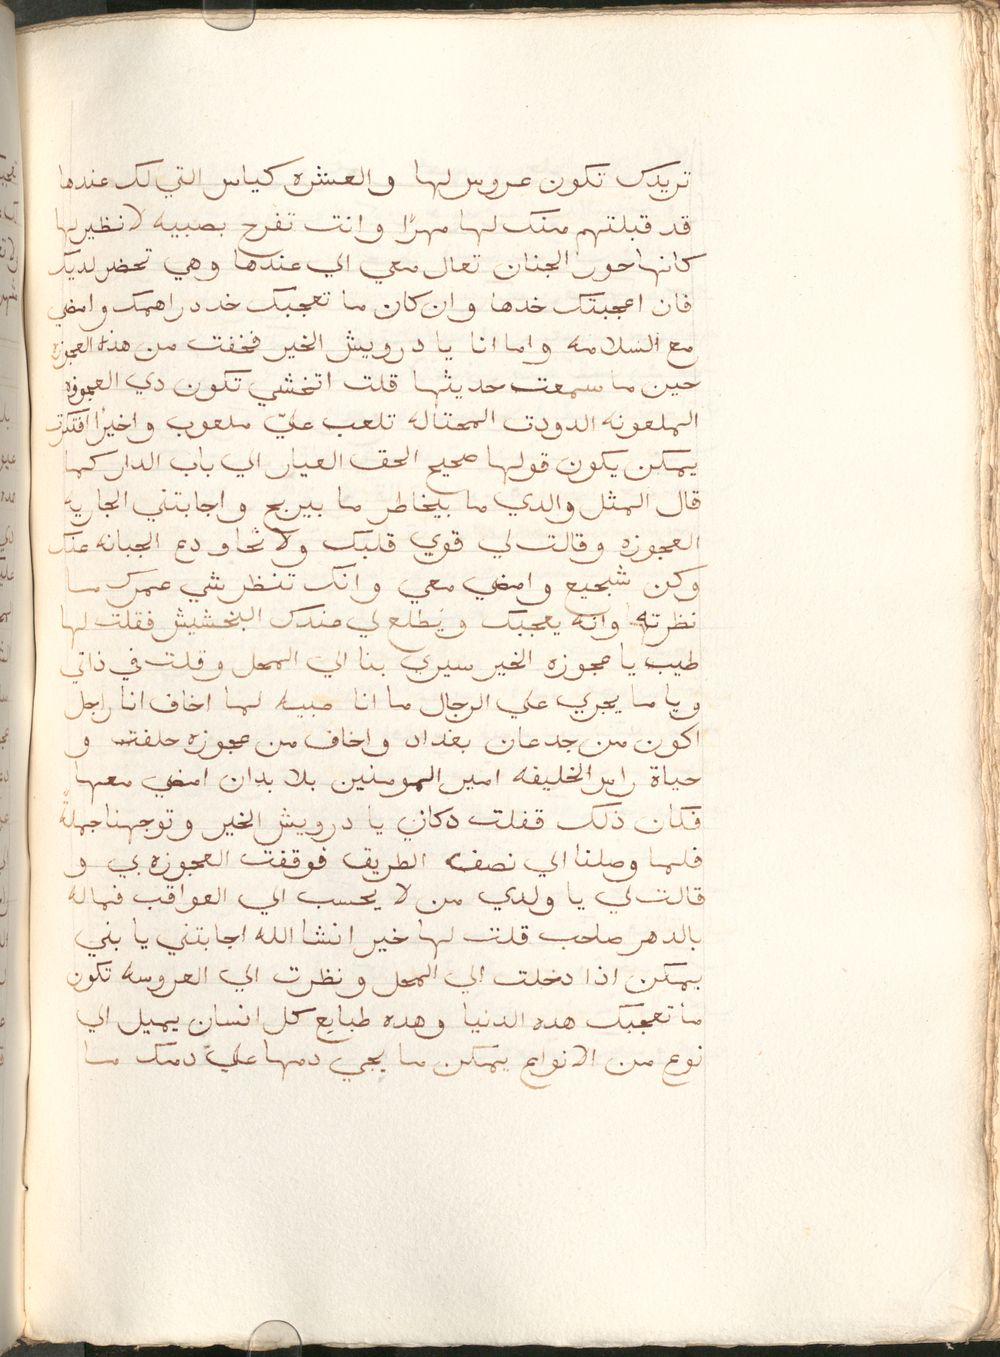 تريدك تكون عروس لها والعشره كياس التي لك عندها
قد قبلتهم منك لها مهرًا وانت تفرح بصبيه لا نظير لها
كانها حور الجنان تعال معي الي عندها وهي تحضر لديك
فان اعجبتك خدها وان كان ما تعجبك خد دراهمك وامضي
مع السلامه واما انا يا درويش الخير فخفت من هذه العجوزه
حين ما سمعت حديثها قلت اتخشي تكون دي العجوزه
الملعونه الدودت المحتاله تلعب عليّ ملعوب واخيرًا افتكرت
يمكن يكون قولها صحيح الحق العيار الي باب الدار كما
قال المثل والدي ما بيخاطر ما بيربح واجابتني الجاريه
العجوزه وقالت لي قوي قلبك ولا تخاو دع الجبانه عنك
وكن شجيع وامضي معي وانك تنظر شي عمرك ما
نظرته وانه يعجبك ويطلع لي مندك البخشيش فقلت لها
طيب يا عجوزه الخير سيري بنا الي المحل وقلت في ذاتي
ويا ما يجري علي الرجال ما انا صبيه لما اخاف انا راجل
اكون من جدعان بغداد واخاف من عجوزه حلفت و
حياة راس الخليفه امير المومنين بلا بدان امضي معها
فكان ذلك قفلت دكاني يا درويش الخير وتوجهنا جملةً
فلما وصلنا الي نصف الطريق فوقفت العجوزه بي و
قالت لي يا ولدي من لا يحسب الي العواقب فماله
بالدهر صاحب قلت لها خير انشا الله اجابتني يا بني
يمكن اذا دخلت الي المحل ونظرت الي العروسه تكون
ما تعجبك هده الدنيا وهده طبايع كل انسان يميل الي
نوع من الانواع يمكن ما يجي دمها علي دمك ما